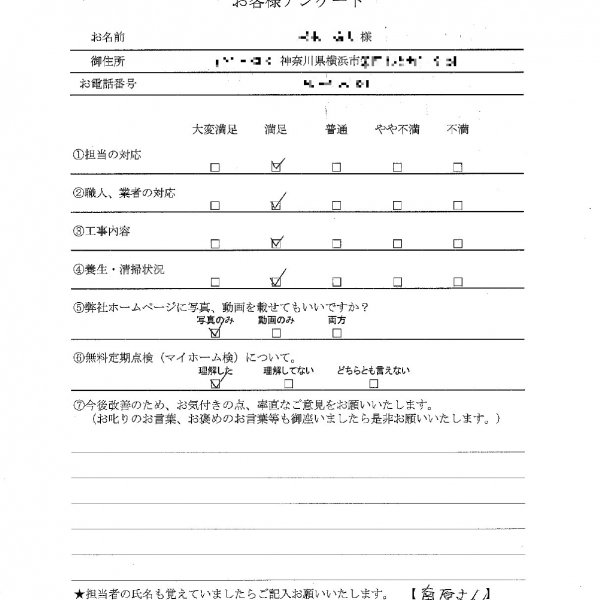 お客様アンケート
お名前 様
御住所 神奈川県横浜市
お電話番号
大変満足 満足 普通 やや不満 不満
①担当の対応
②職人、業者の対応
③工事内容
④養生・清掃状況
⑤弊社ホームページに写真、動画を載せてもいいですか？
写真のみ 動画のみ 両方
⑥無料定期点検（マイホーム検）について。
理解した 理解してない どちらとも言えない
⑦今後改善のため、お気付きの点、率直なご意見をお願いいたします。
（お叱りのお言葉、お褒めのお言葉等も御座いましたら是非お願いいたします。）
★担当者の氏名も覚えていましたらご記入お願いいたします。 【 さん】